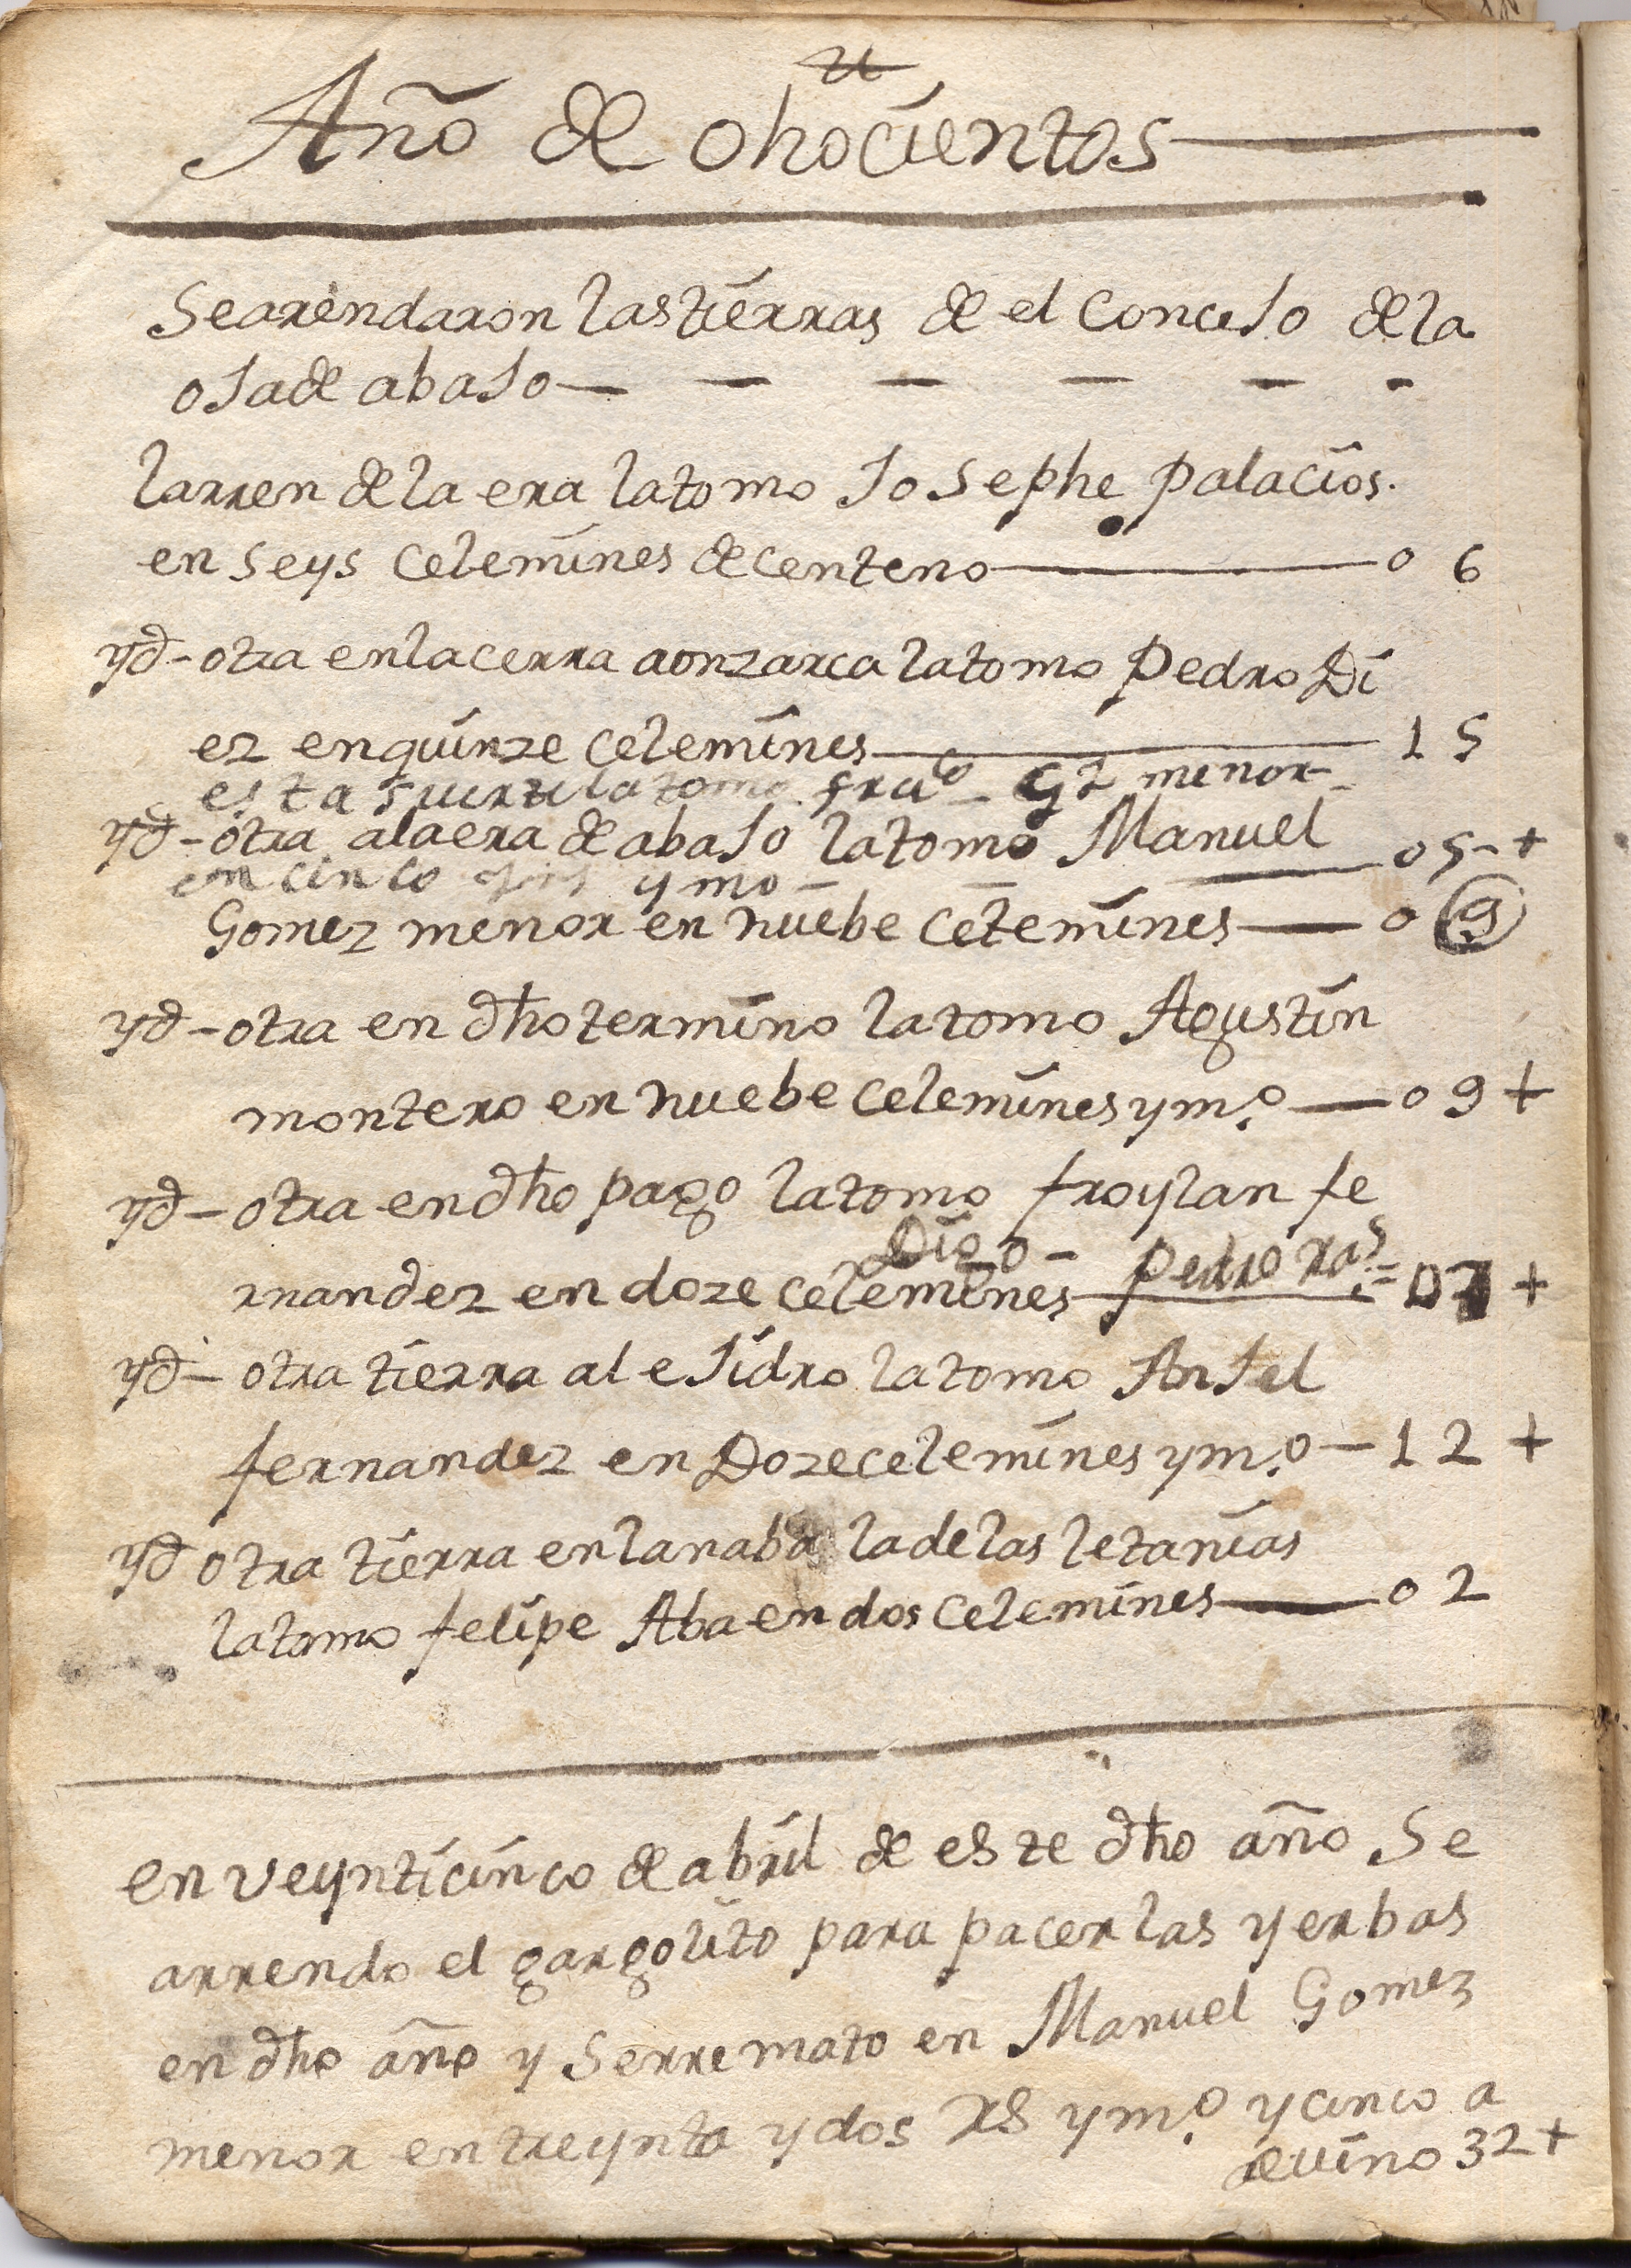 Año de ohocientos
Searendaron lastierras de el ConceJo dela
oJade abaJo
larren dela era latomo JoSephe palacios.
en seys celemines decenteno 0 6
yd - otra enlacerra aonzarca latomo Pedro Di
ez enquinze celemines 1 5
esta suerte latomo fraco Gz menor
yd - otra alaera de abaJo latomo Manuel
en cinco ymo 05 +
Gomez menor en nuebe celemines 0 9
yd - otra en dho termino latomo Agustin
montero en nuebe celemines y m.o 0 9 +
yd - otra en dho pago latomo froylan fe
Digo - Pedro
rnandez en doze celemines 07 +
yd - otra tierra al eJidro latomo AnJel
fernandez en Doze celemines y m.o - 1 2 +
yd otra tierra enlanaba ladelas letanias
latomo felipe Aba en dos celemines 0 2
en veynticinco de abril de este dho año Se
arrendo el gargolito para pacer las yerbas
en dho año y Serremato en Manuel Gomez
menor en treynta y dos RS y m.o y cinco a
de vino 32 +